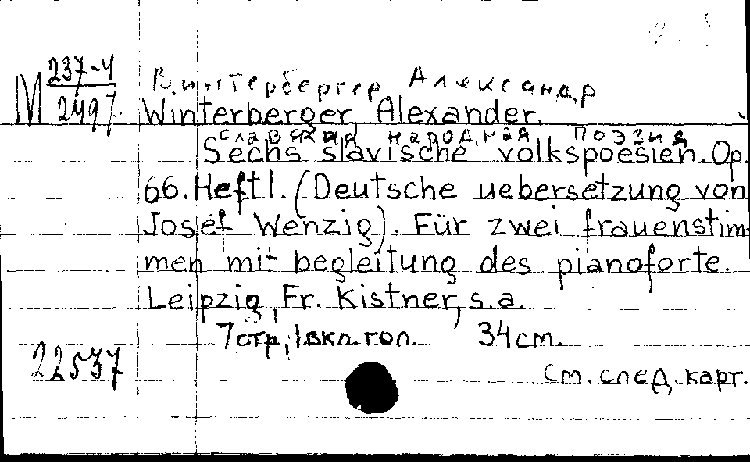 М 237-4
2497
Винтербергер Александр
Winterberger, Alexander.
славянская народная поэзия
Sechs slavische volkspoesien. Op.
66. Heft I. (Deutsche uebersetzung von
Josef Wenzig). Für zwei frauenstim-
men mit begleitung des pianoforte.
Leipzig, Fr. Kistner, s.a.
7 стр., 1 вкл. гол. 34 cm.
22537
См. след. карт.